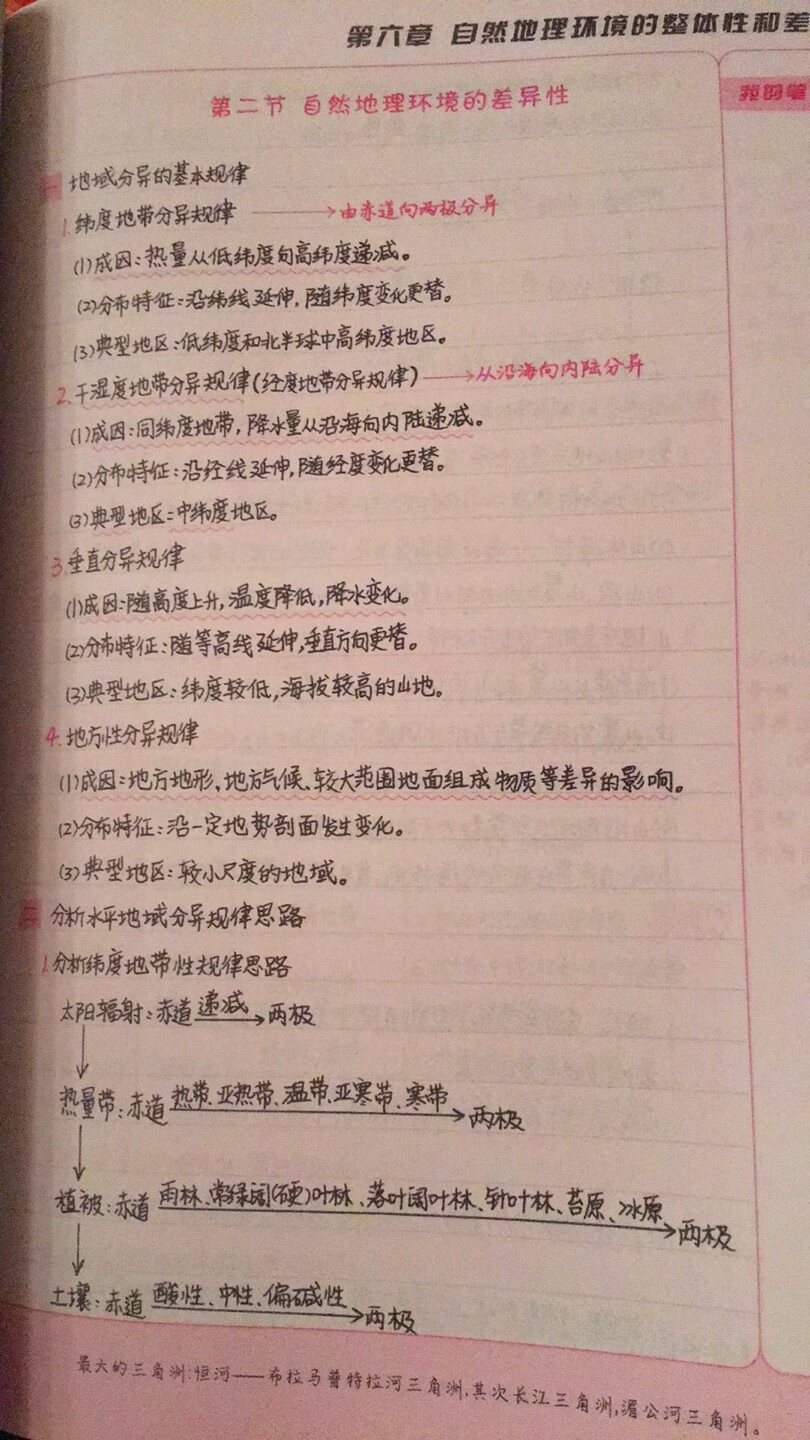 第六章 自然地理环境的整体性和差
我的笔
第二节 自然地理环境的差异性
一 地域分异的基本规律
1.纬度地带分异规律 → 由赤道向两极分异
(1)成因:热量从低纬度向高纬度递减。
(2)分布特征:沿纬线延伸,随纬度变化更替。
(3)典型地区:低纬度和北半球中高纬度地区。
2.干湿度地带分异规律(经度地带分异规律) → 从沿海向内陆分异
(1)成因:同纬度地带,降水量从沿海向内陆递减。
(2)分布特征:沿经线延伸,随经度变化更替。
(3)典型地区:中纬度地区。
3.垂直分异规律
(1)成因:随高度上升,温度降低,降水变化。
(2)分布特征:随等高线延伸,垂直方向更替。
(3)典型地区:纬度较低,海拔较高的山地。
4.地方性分异规律
(1)成因:地方地形、地方气候、较大范围地面组成物质等差异的影响。
(2)分布特征:沿一定地势剖面发生变化。
(3)典型地区:较小尺度的地域。
二 分析水平地域分异规律思路
1.分析纬度地带性规律思路
太阳辐射:赤道 递减 → 两极
↓
热量带:赤道 热带、亚热带、温带、亚寒带、寒带 → 两极
↓
植被:赤道 雨林、常绿阔(硬)叶林、落叶阔叶林、针叶林、苔原、冰原 → 两极
↓
土壤:赤道 酸性、中性、偏碱性 → 两极
最大的三角洲:恒河——布拉马普特拉河三角洲,其次长江三角洲,湄公河三角洲。